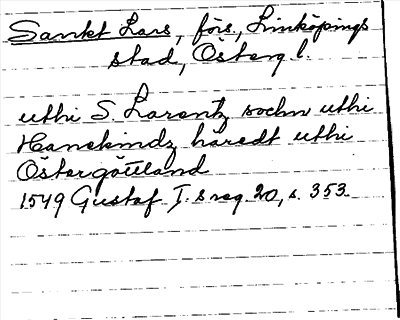 Sankt Lars, förs., Linköpings
stad, Österg l.
uthi S. Larentz sochn uthi
Hanekindz häredt uthi
Östergöttland
1549 Gustaf I:s reg. 20, s. 353.